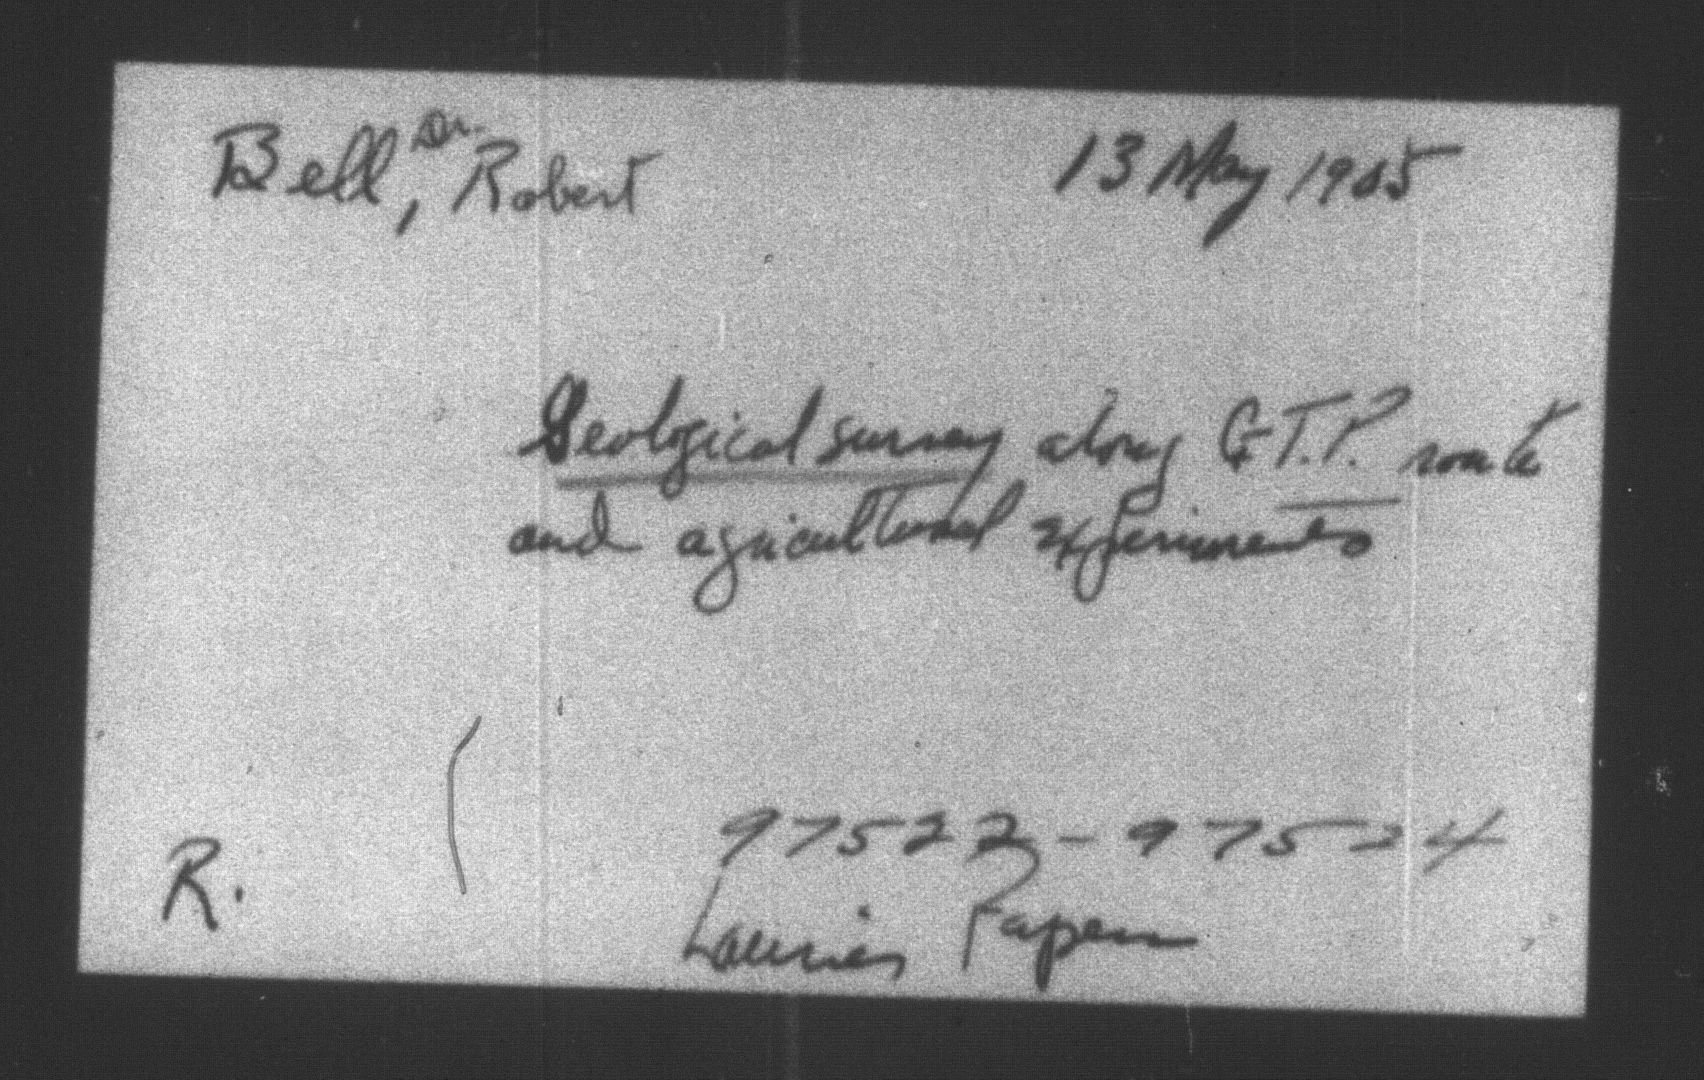 Bell, Dr. Robert 13 May 1905
Geological survey along G.T.P. route
and agricultural experiments
97522-97524
R.
Laurier Papers